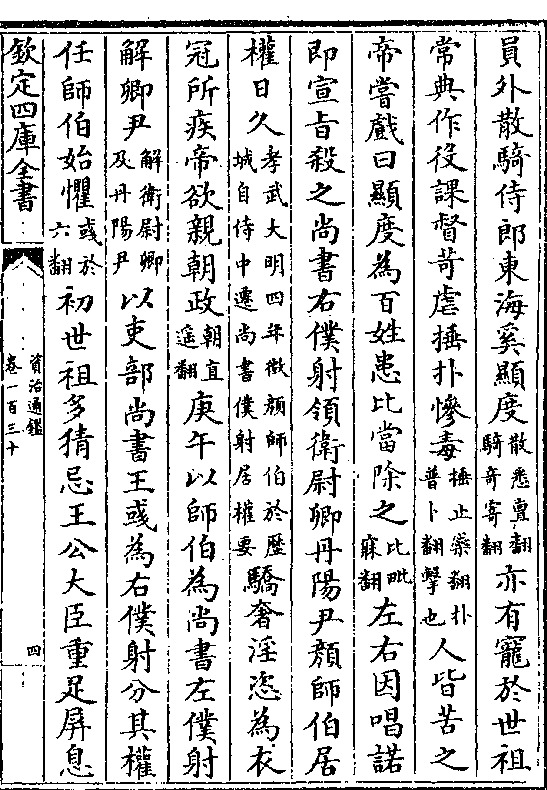 員外散騎侍郎東海奚顯度散悉亶翻騎奇寄翻亦有寵於世祖
常典作役課督苛虐捶扑慘毒捶止橤翻扑普卜翻擊也人皆苦之
帝嘗戲曰顯度為百姓患比當除之比毗寐翻左右因唱諾
即宣旨殺之尚書右僕射領衛尉卿丹陽尹顔師伯居
權日久孝武大明四年徵顔師伯於歷城自侍中遷尚書僕射居權要驕奢淫恣為衣
冠所疾帝欲親朝政朝直遥翻庚午以師伯為尚書左僕射
解卿尹解衛尉卿及丹陽尹以吏部尚書王彧為右僕射分其權
任師伯始懼彧於六翻初世祖多猜忌王公大臣重足屏息
欽定四庫全書
資治通鑑
卷一百三十
四